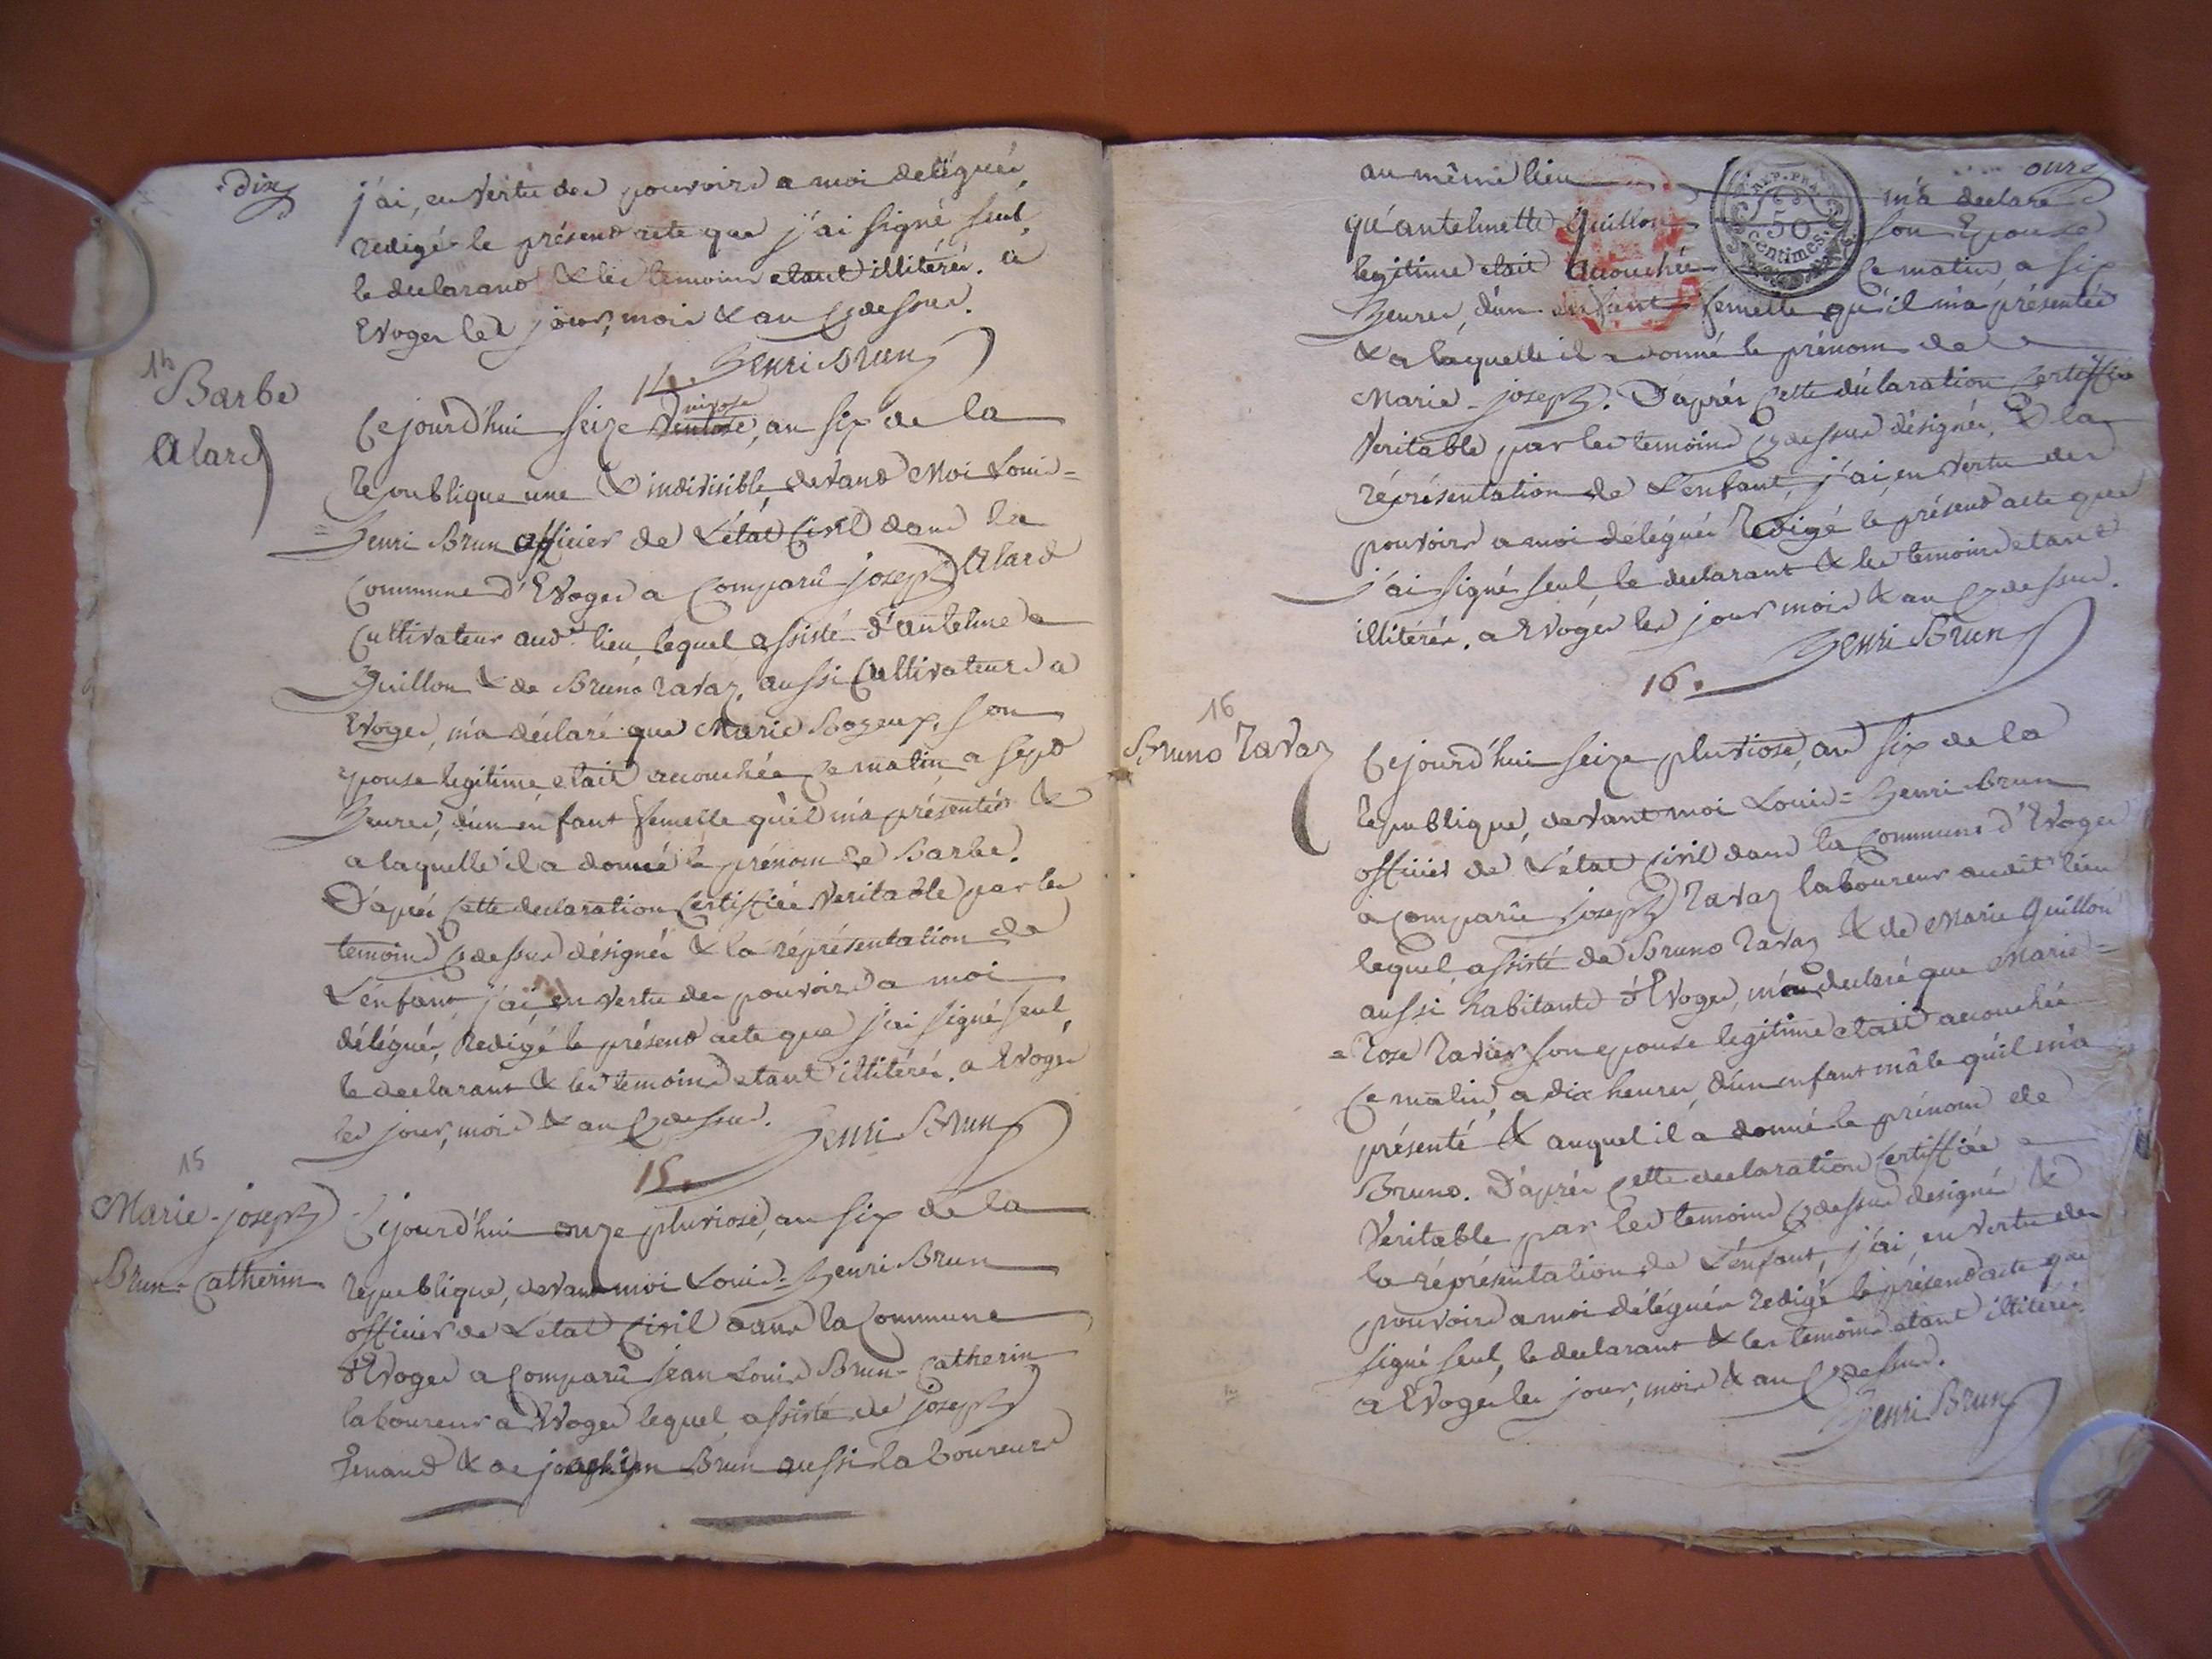 dix
j'ai, en vertu des pouvoirs a moi délégués,
redigé le présend acte que j'ai signé seul,
le declarand & les temoins etant illitérés. à
Evoges les jour, mois & an cy dessus.
Henri Brun
14
Barbe
Alard
14.
Cejourd'hui seize ventose nivose, an six de la
republique une & indivisible, devand Moi Louis=
=Henri Brun officier de L'état Civil dans la
Commune d'Evoges a Comparû joseph Alard
Cultivateur aud.t lieu, lequel assisté d'antelme
Guillon & de Bruno Ravaz, aussi Cultivateurs a
Evoges, m'a déclaré que Marie Bozeux, son
epouse legitime etait accouchée ce matin a sept
heures, d'un enfant femelle qu'il m'a présentés &
a laquelle il a donné le prénom de Barbe.
D'aprés cette declaration certiffiée veritable par les
temoins cydessus désignés & la réprésentation de
L'enfant, j'ai, en vertu des pouvoirs a moi
délégués, Redigé le présend acte que j'ai signé seul,
le declarant & les temoins etant illitérés. a Evoges
les jour, mois & an cydessus.
Henri Brun
15
Marie-joseph
Brun-Catherin
15.
Cejourd'hui onze pluviose, an six de la
republique, devant moi Louis=Henri Brun
officier de L'état Civil dans la Commune
d'Evoges a Comparû jean Louis Brun-Catherin
laboureur a Evoges lequel assisté de joseph
Jenand & de joachim Brun aussi laboureurs
onze
au même lieu m'a declaré
qu'antelmette Guillon son Epouse
legitime etait accouchée Ce matin, a six
heures, d'un enfant femelle qu'il m'a présentés
& a laquelle il a donné le prénom de
Marie-joseph. D'aprés cette déclaration certiffiée
Veritable par les temoins cydessus désignés, & la
réprésentation de L'enfant, j'ai en vertu des
pouvoirs a moi délégués Redigé le présend acte que
j'ai signé seul, le declarant & les temoins etant
illitérés. a Evoges les jour mois & an cydessus.
Henri Brun
16
Bruno Ravaz
16.
Cejourd'hui seize pluviose, an six de la
republique, devant moi Louis=Henri Brun
officier de L'état Civil dans la Commune d'Evoges
a comparû joseph Ravaz laboureur audit lieu
lequel assisté de Bruno Ravaz & de Marie Guillon
aussi habitants d'Evoges, m'a declaré que Marie=
=Rose Ravier son epouse legitime etait accouchée
Ce matin, a dix heures, d'un enfant mâle qu'il m'a
présenté & auquel il a donné le prénom de
Bruno. D'aprés cette declaration certiffiée
Veritable par les temoins cydessus designés &
la réprésentation de L'enfant, j'ai, en vertu des
pouvoirs a moi délégués redigé le présend acte que
signé seul, le declarant & les temoins etant illiterés.
a Evoges les jour, mois & an cydessus.
Henri Brun
REP. FRA.
50
Centimes.